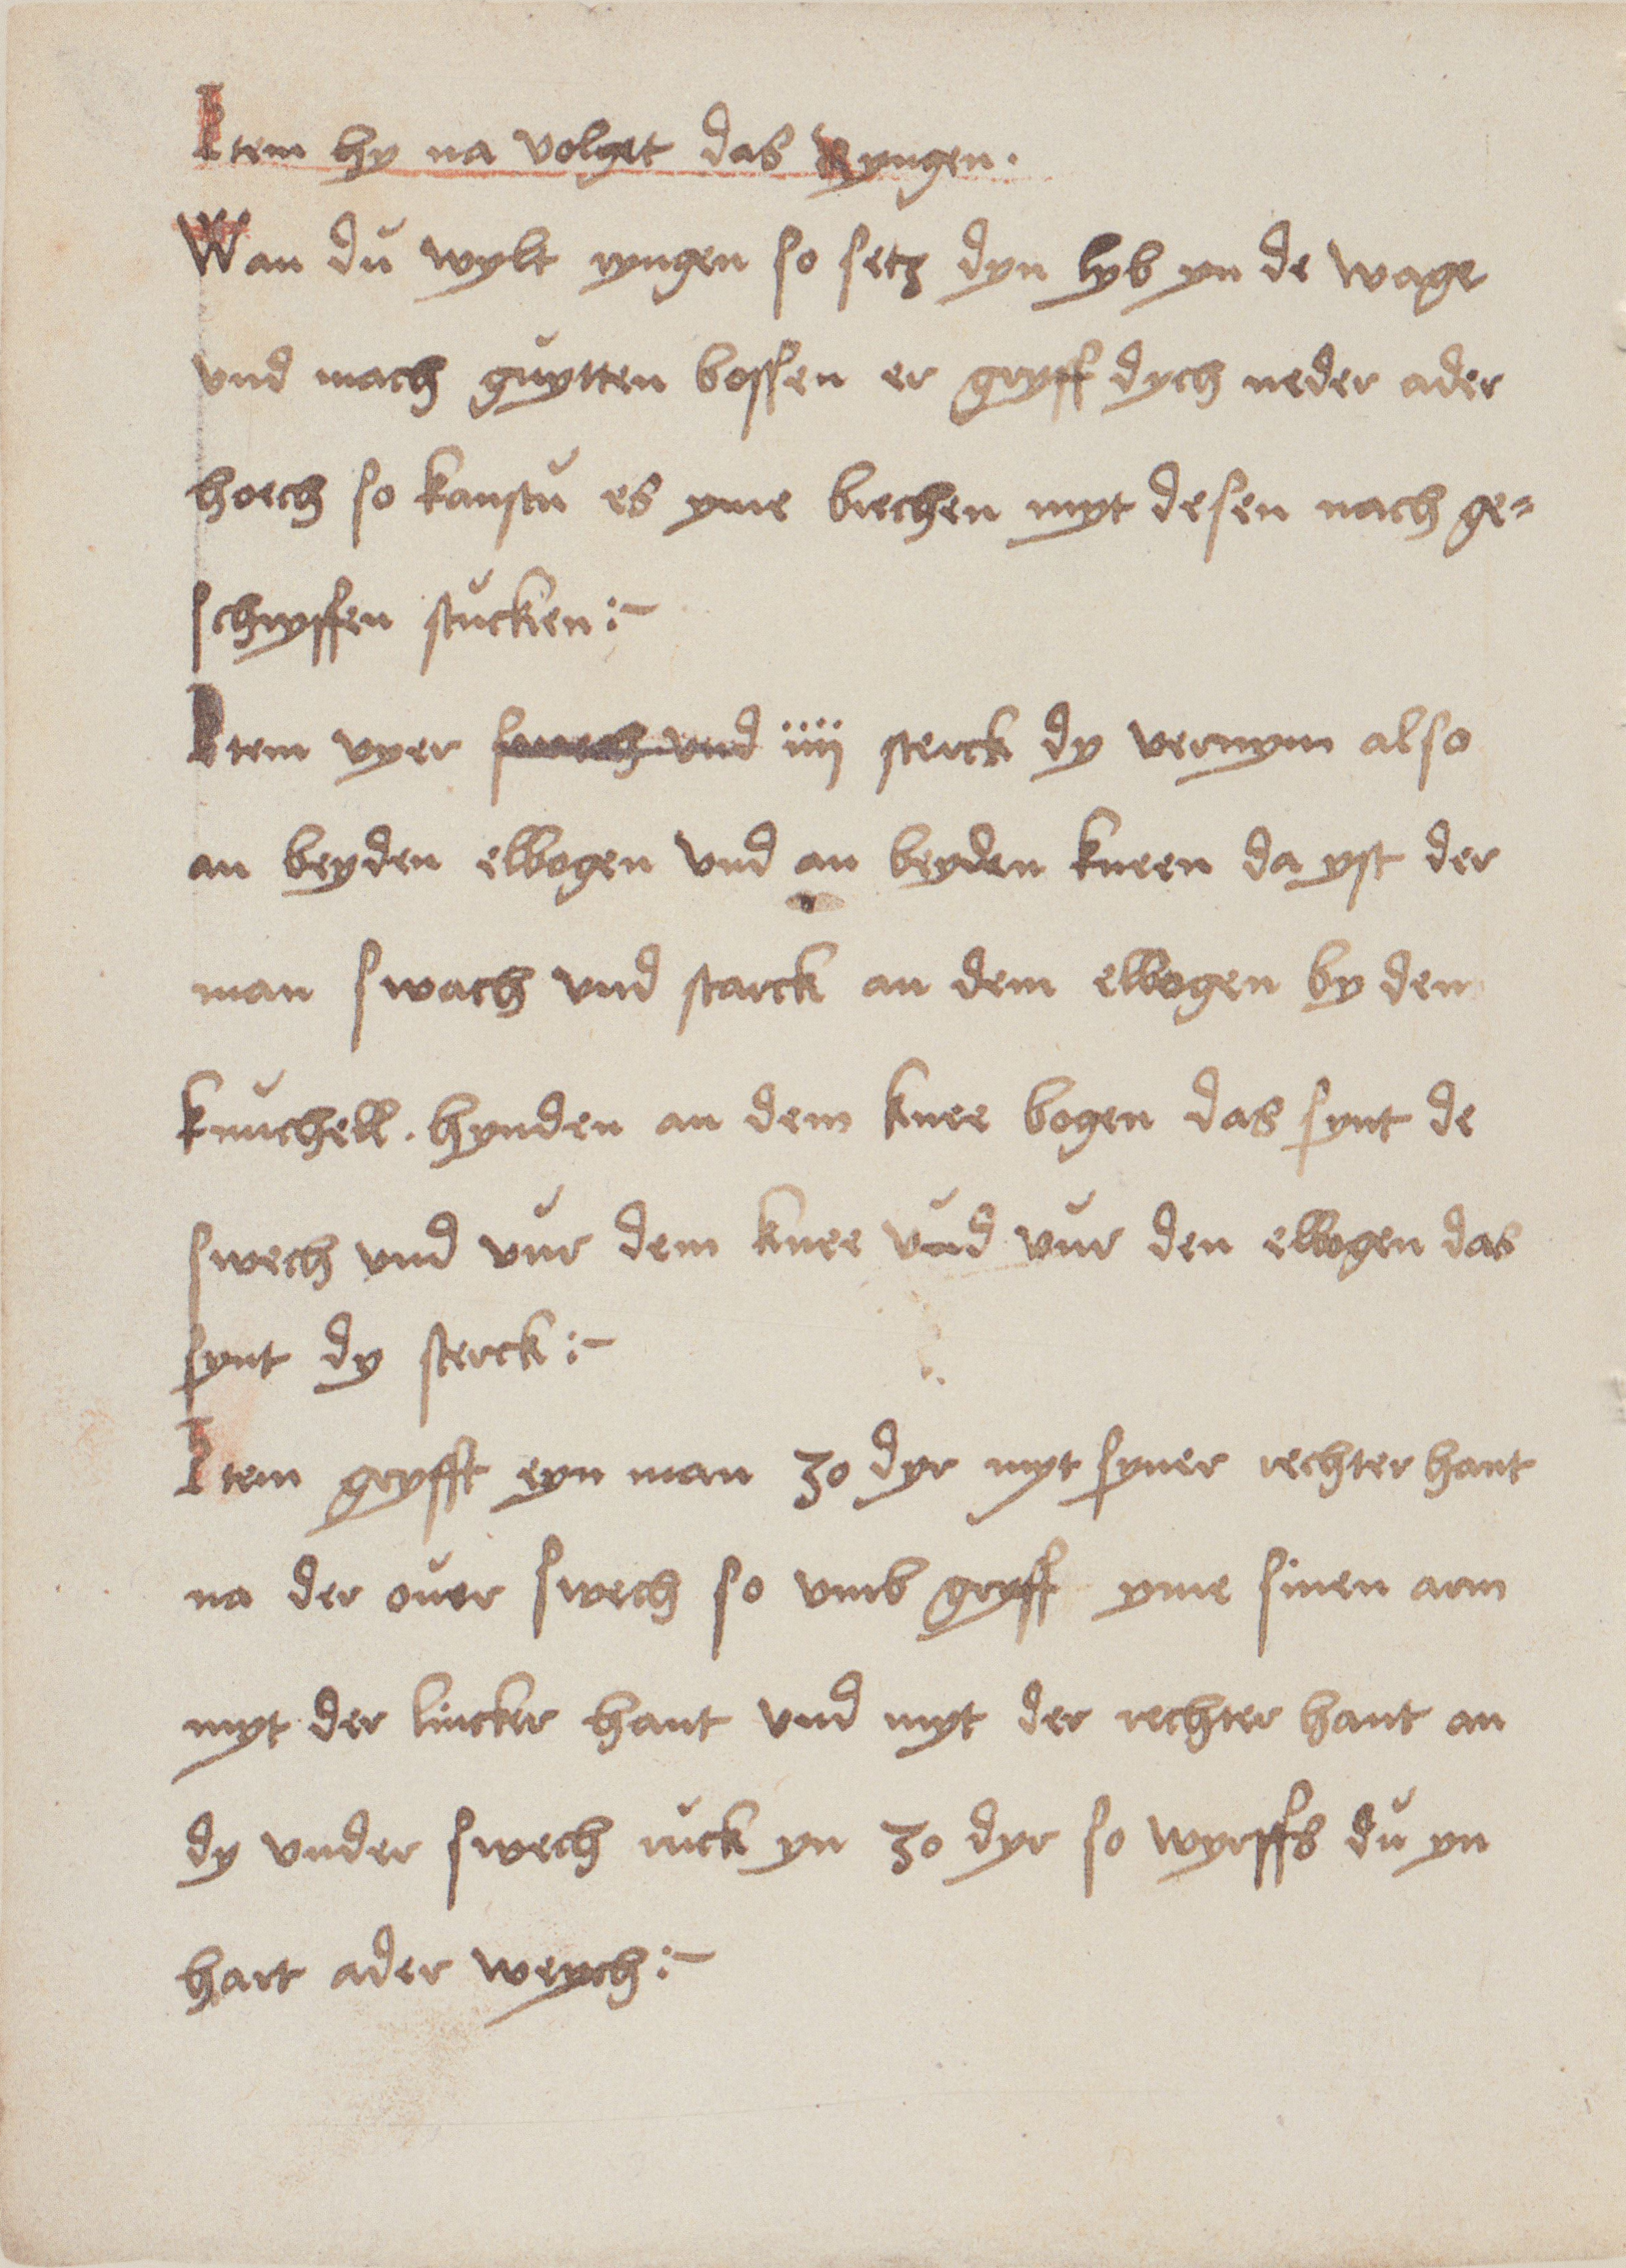 Item hy na volget das Ryngen.
Wan du wylt ryngen so setz dyn lyb yn de wage
vnd mach guytten bossen er gryff dych neder ader
hoech so kanstu es yme brechen myt desen nach ge=
schryffen stucken :~
Item vyer swech vnd iiij sterck dy vernym also
an beyden elbogen vnd an beyden kneen da yst der
man swach vnd starck an dem elbogen by den
knuchell. hynden an dem knee bogen das synt de
swech vnd vur dem knee vnd vur den elbogen das
synt dy sterck :~
Item gryfft eyn man zo dyr myt syner rechter hant
na der ouer swech so vmb gryff yme sinen arm
myt der lincker hant vnd myt der rechter hant an
dy vnder swech ruck yn zo dyr so wyrffs du yn
hart ader weych :~